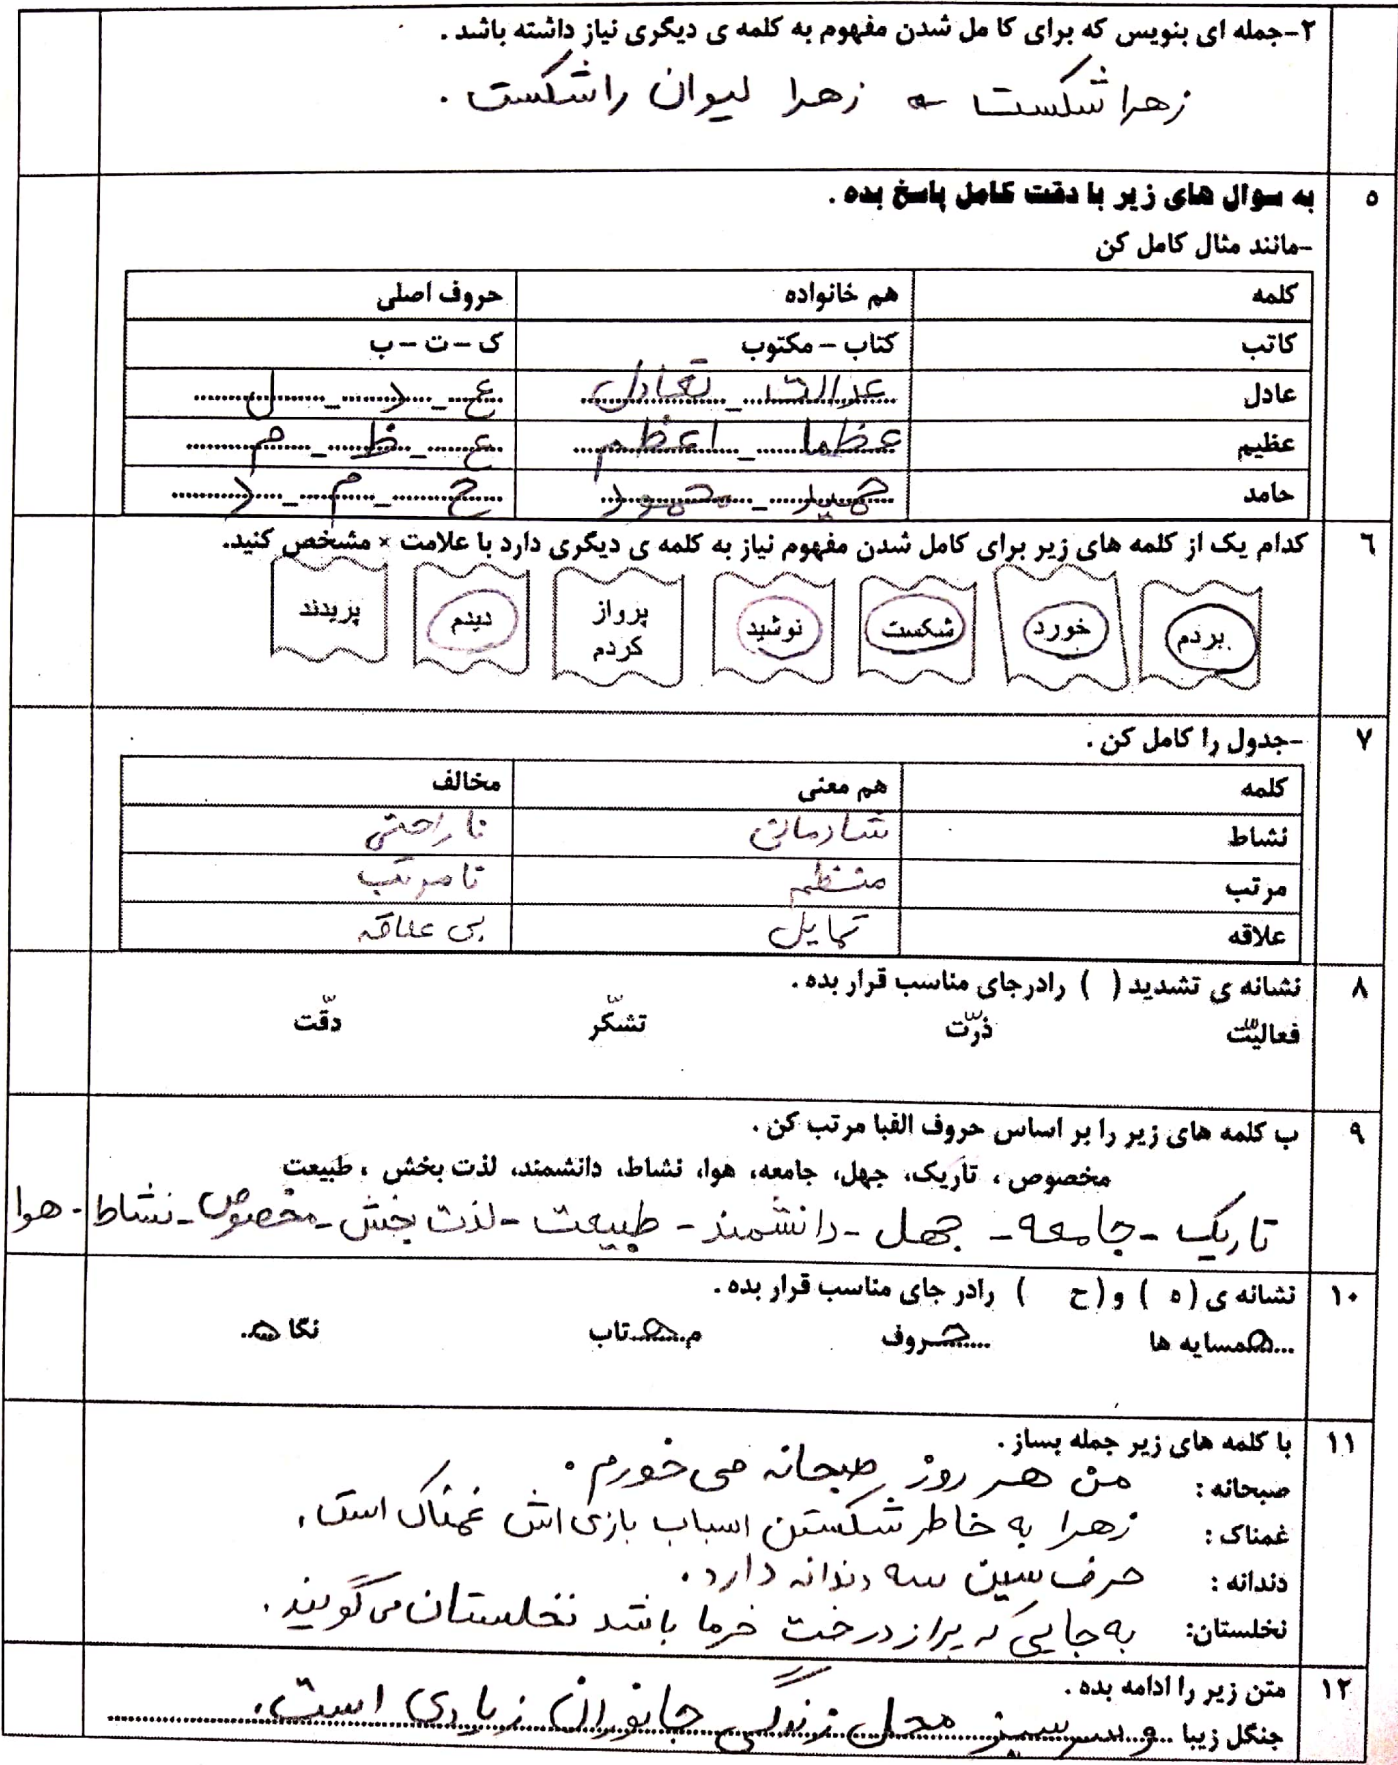 ۲-جمله ای بنویس که برای کا مل شدن مفهوم به کلمه ی دیگری نیاز داشته باشد .
زهرا شکست ← زهرا لیوان را شکست .
۵ به سوال های زیر با دقت کامل پاسخ بده .
-مانند مثال کامل کن
کلمه هم خانواده حروف اصلی
کاتب کتاب - مکتوب ک - ت - ب
عادل عدالت - تعادل ع - د - ل
عظیم عظما - اعظم ع - ظ - م
حامد حمید - محمود ح - م - د
۶ کدام یک از کلمه های زیر برای کامل شدن مفهوم نیاز به کلمه ی دیگری دارد با علامت × مشخص کنید.
بردم خورد شکست نوشید پرواز کردم دیدم پریدند
۷ -جدول را کامل کن .
کلمه هم معنی مخالف
نشاط شادمانی ناراحتی
مرتب منظم نامرتب
علاقه تمایل بی علاقه
۸ نشانه ی تشدید ( ) رادرجای مناسب قرار بده .
فعالیّت ذرّت تشکّر دقّت
۹ ب کلمه های زیر را بر اساس حروف الفبا مرتب کن .
مخصوص ، تاریک، جهل، جامعه، هوا، نشاط، دانشمند، لذت بخش ، طبیعت
تاریک - جامعه - جهل - دانشمند - طبیعت - لذت بخش - مخصوص - نشاط - هوا
۱۰ نشانه ی ( ه ) و ( ح ) رادر جای مناسب قرار بده .
...همسایه ها ...حروف م...ه...تاب نگا ه..
۱۱ با کلمه های زیر جمله بساز .
صبحانه : من هر روز صبحانه می خورم .
غمناک : زهرا به خاطر شکستن اسباب بازی اش غمناک است .
دندانه : حرف سین سه دندانه دارد .
نخلستان: به جایی که پر از درخت خرما باشد نخلستان می گویند .
۱۲ متن زیر را ادامه بده .
جنگل زیبا ...و سرسبز محل زندگی جانوران زیادی است .